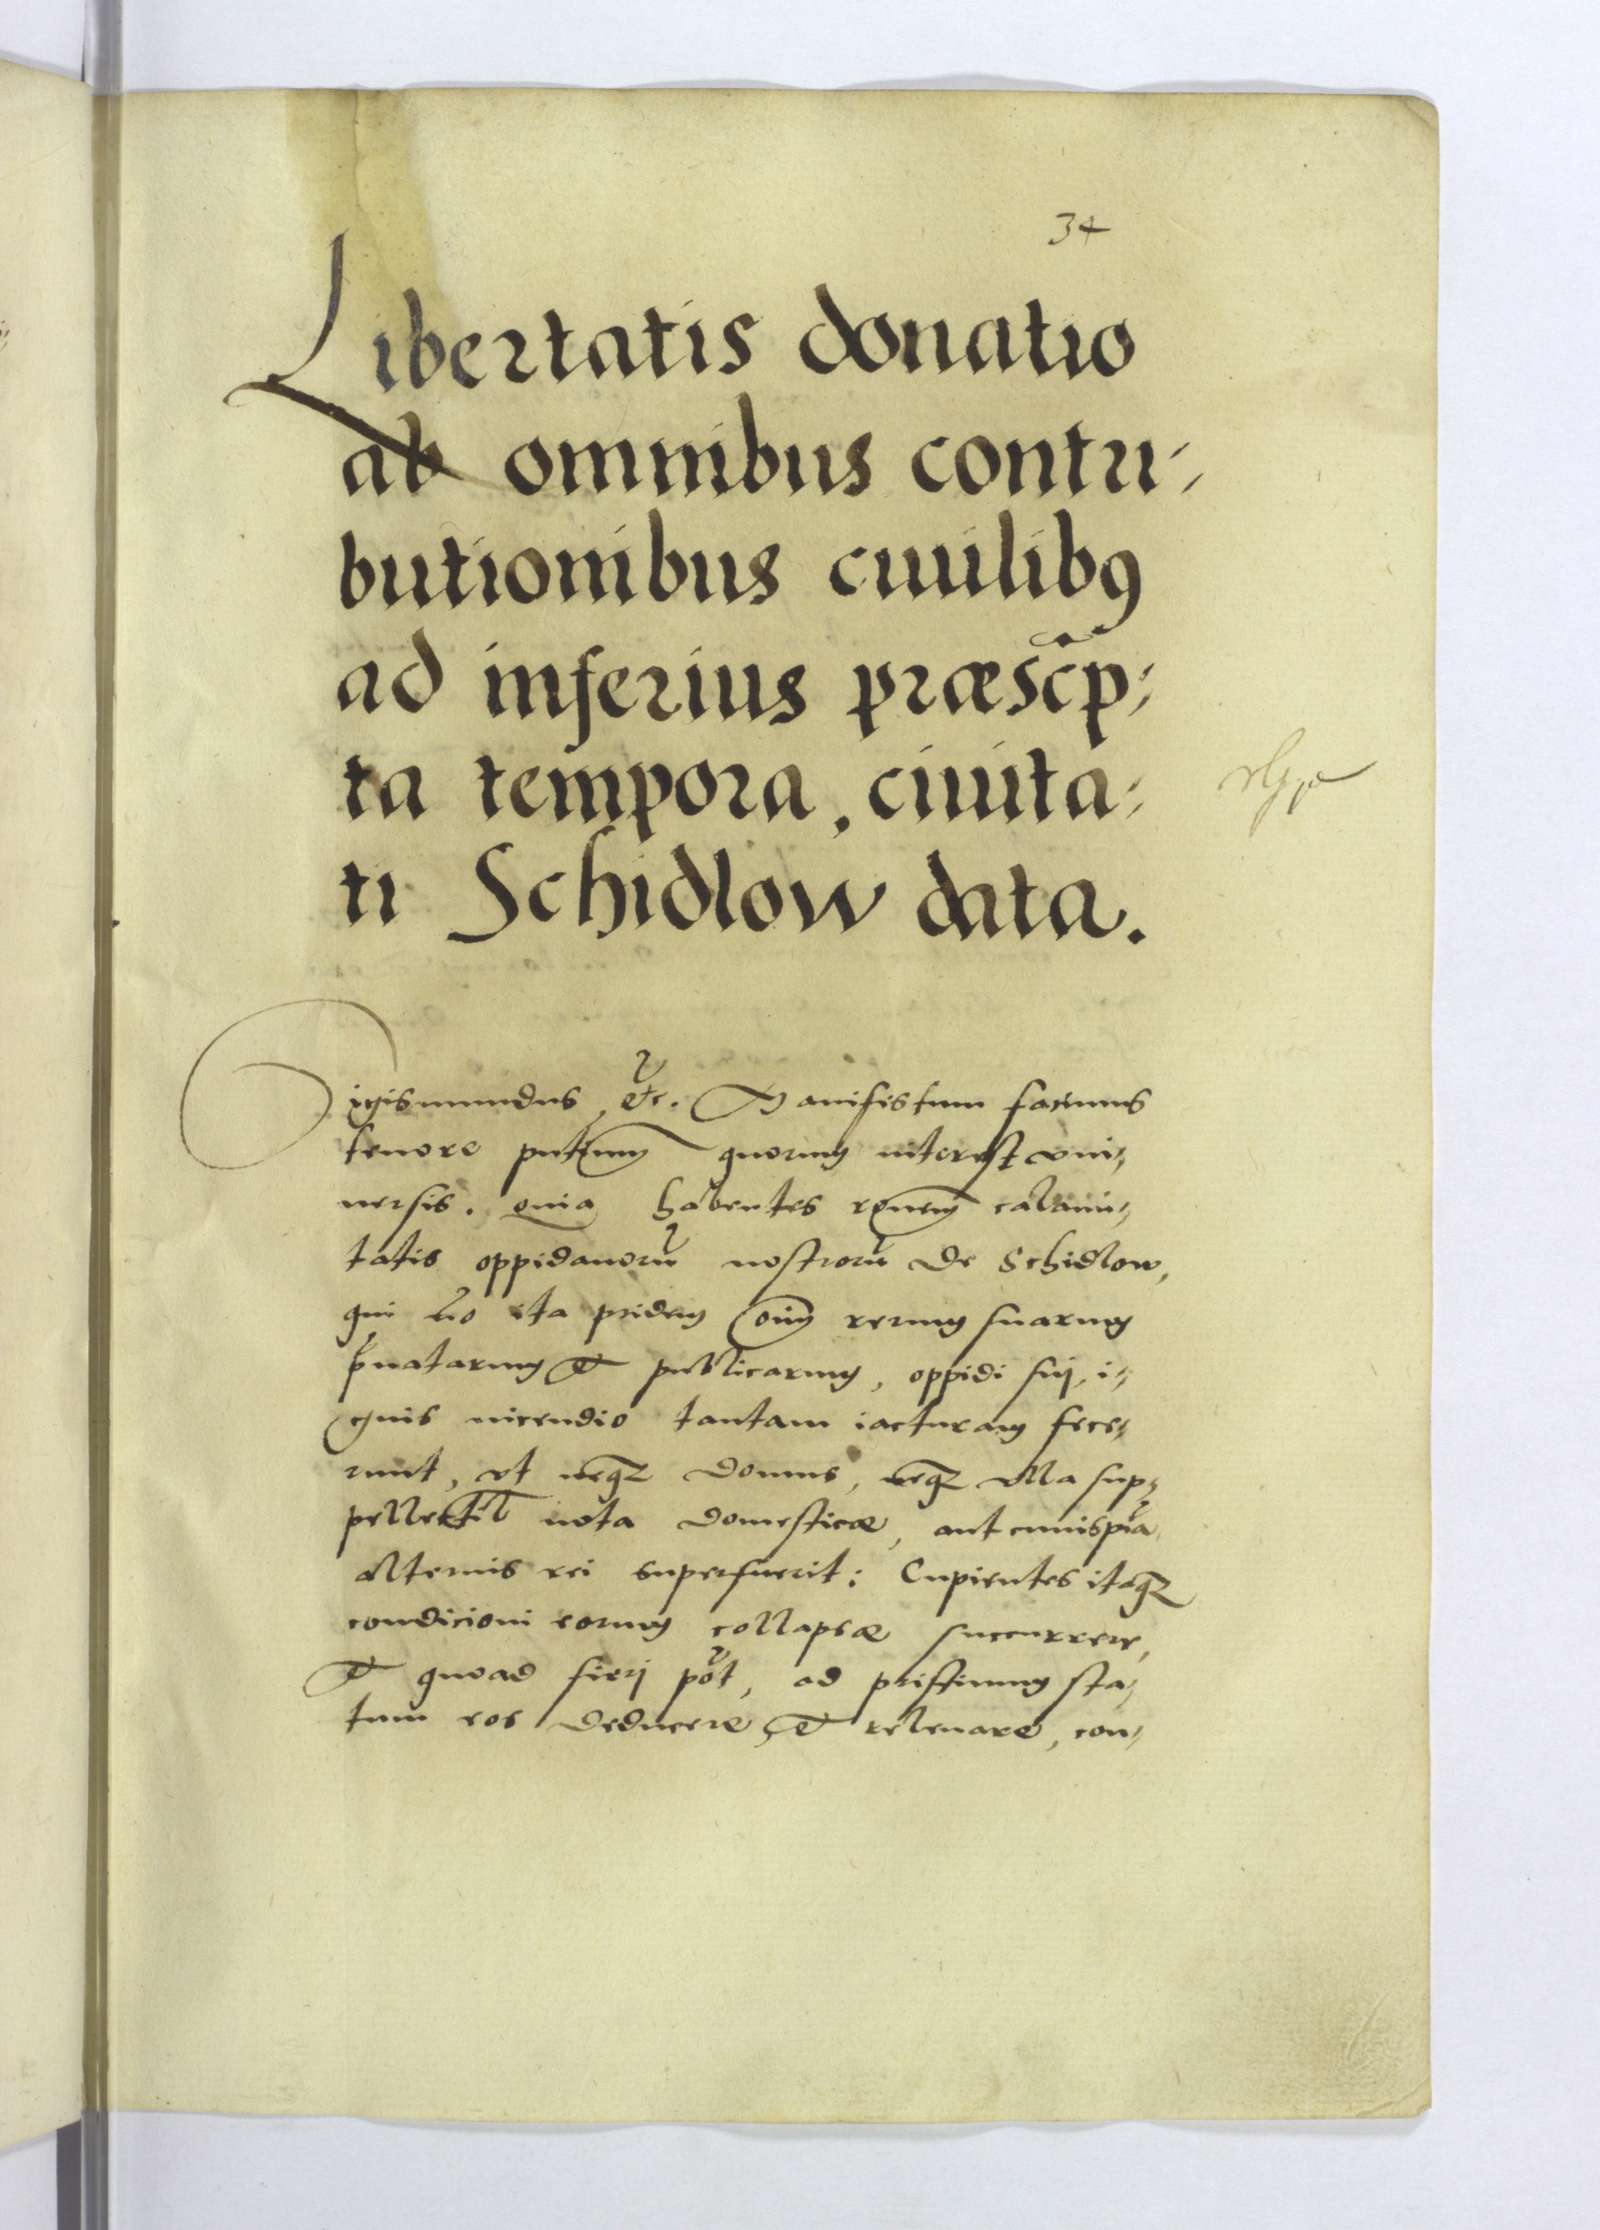 34
Libertatis donatio
ab omnibus contri-
butionibus ciuilibꝰ
ad inferius præsc̃p-
ta tempora, ciuita-
ti Schidlow data.
Sigismundus, etc. Manifestum facimus
tenore pñtium quorum interest vni-
uersis. quia habentes rõnem calami-
tatis oppidanorũ nostrorũ de Schidlow,
qui ño ita pridem oĩm rerum suarum
pͥuatarum et publicarum, oppidi sui, i-
gnis incendio tantam iacturam fece-
runt, vt neqꝫ domus, neqꝫ vlla sup-
pellectil nota domesticæ, aut cuiuspiã
alterius rei superfuerit: Cupientes itaqꝫ
condicioni eorum collapsæ succurrere,
et quoad fieri põt, ad pristinum sta-
tum eos deducere, et releuare, con-